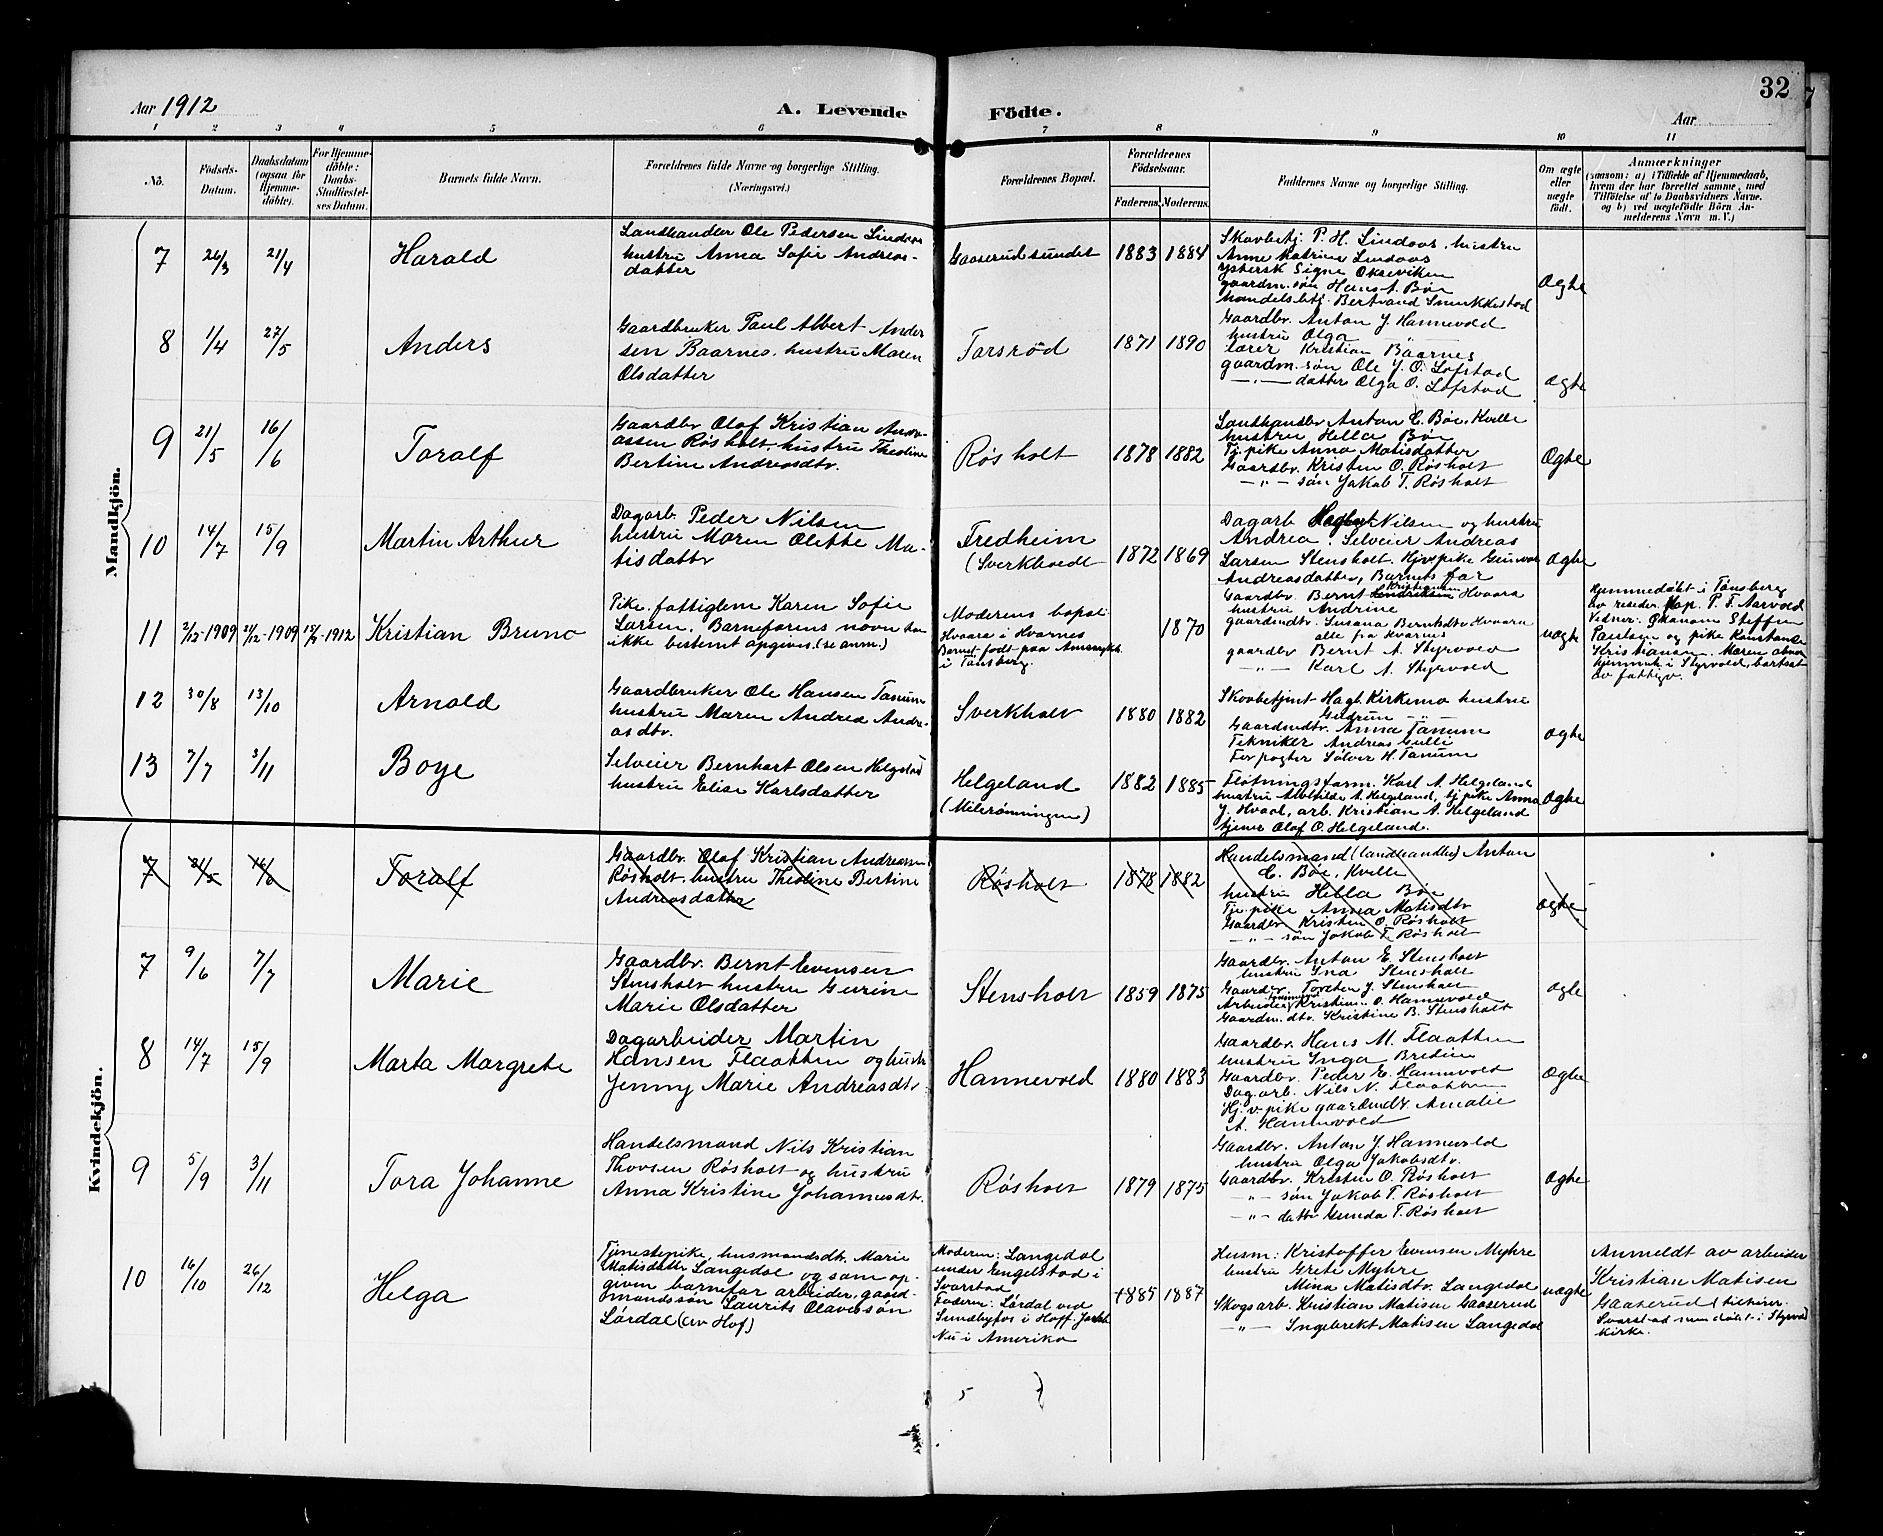 Aar 1912
A. Levende Födte.
Aar
32
1 2 3 4 5 6 7 8 9 10 11
No.
Födsels-
Datum.
Daabsdatum
(ogsaa for
Hjemme-
döbte).
For Hjemme-
döbte:
Daabs-
Stadfæstel-
ses Datum.
Barnets fulde Navn.
Forældrenes fulde Navne og borgerlige Stilling.
(Næringsvei.)
Forældrenes Bopæl.
Forældrenes
Födselsaar.
Faderens. Moderens.
Faddernes Navne og borgerlige Stilling.
Om ægte
eller
uægte
födt.
Anmærkninger
(saasom: a) i Tilfælde af Hjemmedaab,
hvem der har forrettet samme, med
Tilföielse af to Daabsvidners Navne.
og b) ved uægtefödte Börn An-
melderens Navn m. V.)
Mandkjön.
7 26/3 21/4 Harald
Landhandler Ole Pedersen Lindaas
hustru Anna Sofie Andreas-
datter
Gaaserudsundet 1883 1884
Skovbetj. P. H. Lindaas, hustru
Anne Matrine Lindaas
Signe Okseviken
gaardm. søn Hans A. Bøe
handelsbetj. Bertrand Smukkestad
Ægte
8 1/4 27/5 Anders
Gaardbruker Paul Albert Ander
sen Baarnes, hustru Maren
Olsdatter
Torsrød 1871 1890
Gaardbr. Anton J. Hannevold
hustru Olga
lærer Kristian Baarnes
gaardm. søn Ole J. O. Løfstad
— " — datter Olga O. Løfstad
ægte
9 21/5 16/6 Toralf
Gaardbr Olaf Kristian Andre-
assen Røsholt, hustru Theoline
Bertine Andreasdtr.
Røsholt 1878 1882
Landhandler Anton C. Bøe, Kville
hustru Hella Bøe
Tj. pike Anna Matisdatter
Gaardbr. Kristen O. Røsholt
— " — søn Jakob T. Røsholt
Ægte
10 14/7 15/9 Martin Arthur
Dagarb. Peder Nilsen
hustru Maren Olette Ma-
tisdattr
Fredheim
(Sverkholt 1872 1869
Dagarb Nilsen og hustru
Andrea. Selveier Andreas
Larsen Stensholt. Hjv. pike Gunvor
Andreasdatter, Barnets far
ægte
11 2/12-1909 21/12-1909 15/9-1912 Kristian Bruno
Pike, fattiglem Karen Sofie
Larsen. Barnefarens navn kan
ikke bestemt opgives. (se anm.)
Moderens bopæl:
Hvaara i Hvarnes
Barnet født paa Amtssykeh.
i Tønsberg.
1870
Gaardbr. Bernt Kristiansen Hvaara
hustru Andrine
gaardmdtr. Susana Berntsdtr Hvaara
alle fra Hvarnes
gaardbr Bernt A. Styrvold
— " — Karl A. Styrvold
uægte
Hjemmedøbt i Tønsberg
av resider. kap. P. F. Aarvold
Vidner: Økonom Steffen
Paulsen og pike Konstanse
Kristiansen. Moren
hjemmeh. i Styrvold, bortsat
av fattigv.
12 30/8 13/10 Arnold
Gaardbruker Ole Hansen Tanum
hustru Maren Andrea Andre-
asdtr.
Sverkholt 1880 1882
Skovbetjent Hagb. Kirkemo hustru
Gudrun — " —
Gaardmdtr. Anna Tanum
Tekniker Andreas Gulli
Forpagter Sølver H. Tanum
ægte
13 7/7 3/11 Boye
Selveier Bernhart Olsen Helgeland
hustru Elise Karlsdatter
Helgeland
(Milerønningen) 1882 1885
Fløtningsform. Karl A. Helgeland
hustru Alvhilde A. Helgeland, tj. pike Anna
J. Hvaal, arb. Kristian A. Helgeland
tjener Olaf O. Helgeland.
ægte
Kvindekjön.
7 21/5 16/6 Toralf
Gaardbr. Olaf Kristian Andreassen
Røsholt, hustru Theoline Bertine
Andreasdatter
Røsholt 1878 1882
Handelsmand (landhandler) Anton
C. Bøe, Kville
hustru Hella Bøe
Tje. pike Anna Matisdtr
Gaardbr Kristen O. Røsholt
— " — søn Jakob T. Røsholt
ægte
7 9/6 7/7 Marie
Gaardbr. Bernt Evensen
Stensholt hustru Gurine
Marie Olsdatter
Stensholt 1859 1875
Gaardbr. Anton E. Stensholt
hustru Ina Stensholt
Gaardbr. Torsten J. Stensholt
Arbeider Kristian O. Hannevold
Gaardm. dtr. Kristine B. Stensholt
ægte
8 14/7 15/9 Marta Margrete
Dagarbeider Martin
Hansen Flaatten og hustr
Jenny Marie Andreasdtr.
Hannevold 1880 1883
Gaardbr. Hans M. Flaatten
hustru Inga Bredine
Gaardbr. Peder E. Hannevold
Dagarb. Nils N. Flaatten
Hj. v. pike gaardmdtr. Amalie
A. Hannevold
Ægte
9 5/9 3/11 Tora Johanne
Handelsmand Nils Kristian
Thovsen Røsholt og hustru
Anna Kristine Johannesdtr.
Røsholt 1879 1875
Gaardbr. Anton J. Hannevold
hustru Olga Jakobsdtr.
Gaardbr. Kristen O. Røsholt
— " — søn Jakob T. Røsholt
— " — datter Gunda T. Røsholt
Ægte
10 16/10 26/12 Helga
Tjenestepike, husmandsdtr. Marie
Matisdatter Langedal og som op-
given barnefar arbeider, gaard-
mandssøn Laurits Olavessøn
Lørdal (av Hof)
Moderen: Langedal
under Engelstad i
Svarstad
Faderen: Lørdal ved
Sundbyfos i Hoff. Jarlsb.
Nu i Amerika
1885 1887
Husm: Kristoffer Evensen Myhre
hustru Grete Myhre
Mina Matisdtr. Langedal
Skogsarb. Kristian Matisen Gaaserud
— " — Ingebrekt Matisen Langedal
uægte
Anmeldt av arbeider
Kristian Matisen
Gaaserud (tilhører
Svarstad men døbt i Styrvold
kirke.
5